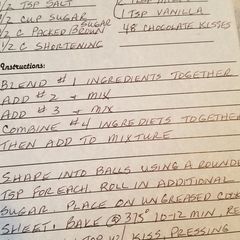 1/2 TSP SALT
1/2 CUP SUGAR
1/2 C PACKED BROWN SUGAR
1/2 C SHORTENING
1 TSP VANILLA
48 CHOCOLATE KISSES
Instructions:
BLEND #1 INGREDIENTS TOGETHER
ADD #2 + MIX
ADD #3 + MIX
COMBINE #4 INGREDIETS TOGETHER
THEN ADD TO MIXTURE
SHAPE INTO BALLS USING A ROUNDE
TSP FOR EACH. ROLL IN ADDITIONAL
SUGAR. PLACE ON UNGREASED COOK
SHEET. BAKE @ 375° 10-12 MIN. RE
TOP W/ KISS, PRESSING